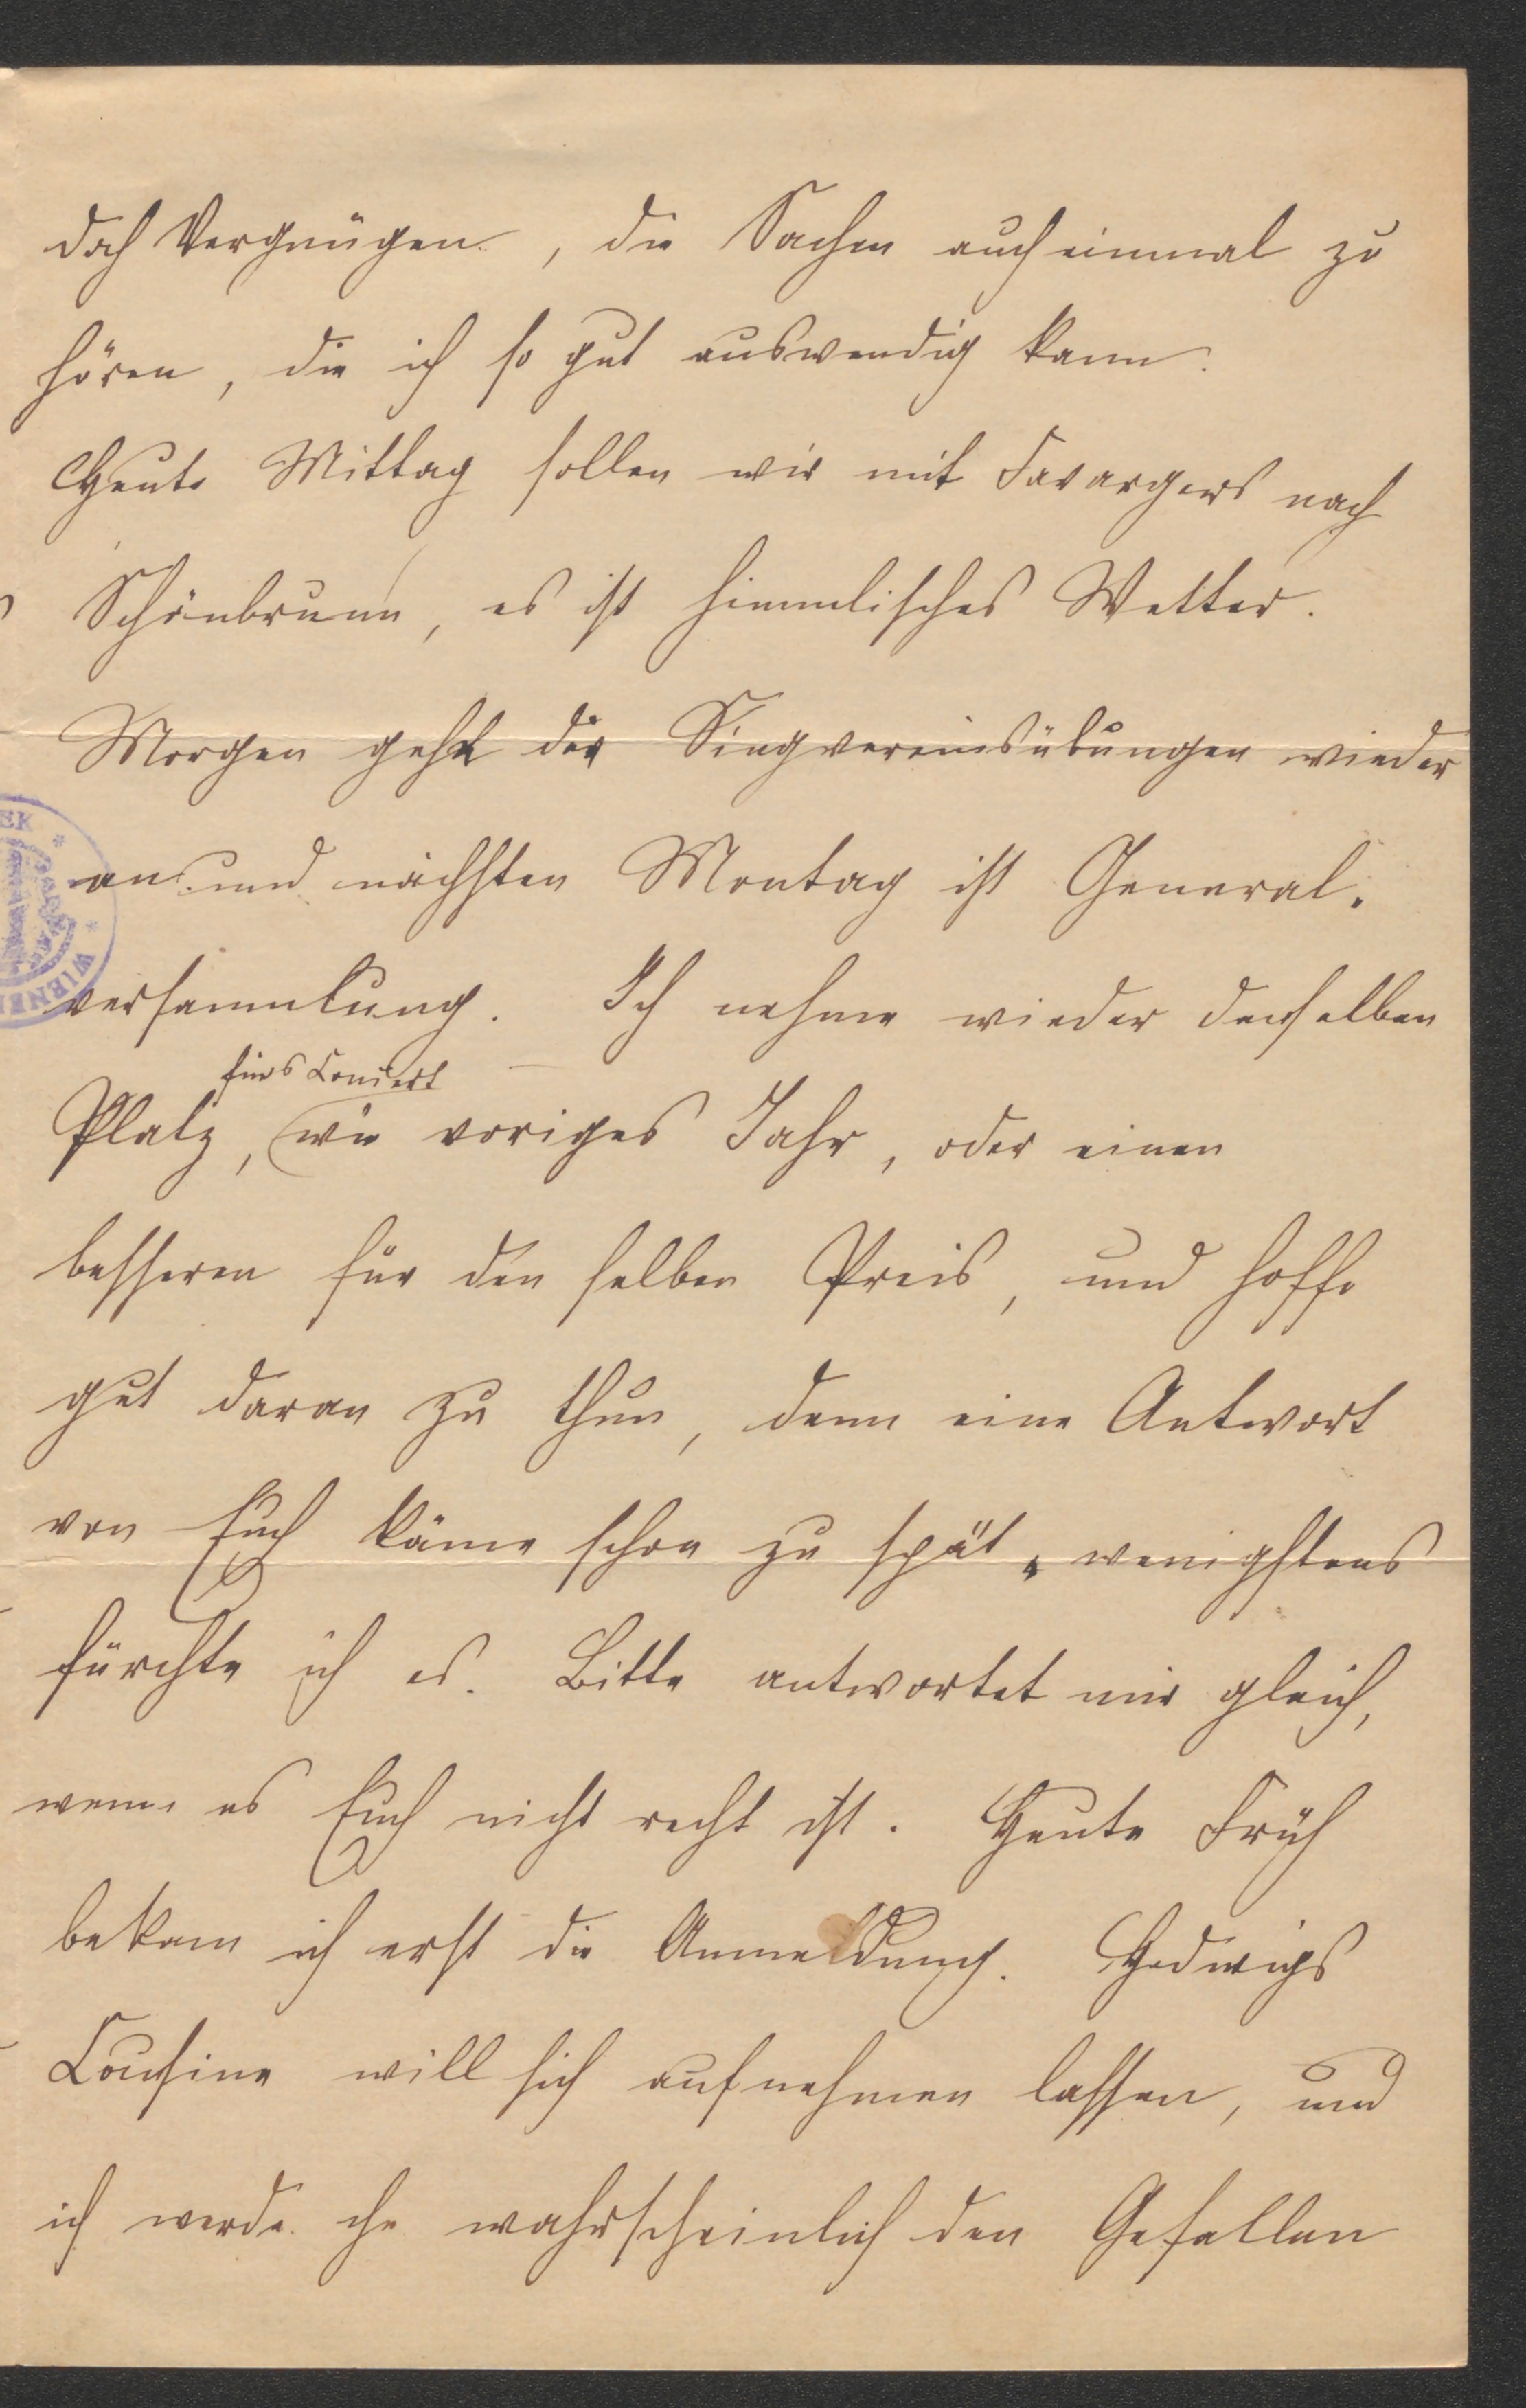 doch Vergnügen, die Sachen auch einmal zu
hören, die ich so gut auswendig kann.
Heute Mittag sollen wir mit Favargers nach
Schönbrunn, es ist himmlisches Wetter.
Morgen geht die Singvereinsübungen wieder
an und nächsten Montag ist General-
versammlung. Ich nehme wieder denselben
fürs Concert
Platz, wie voriges Jahr, oder einen
besseren für den selben Preis, und hoffe
gut daran zu thun, denn eine Antwort
von Euch käme schon zu spät, wenigstens
fürchte ich es. Bitte antwortet mir gleich,
wenn es Euch nicht recht ist. Heute Früh
bekam ich erst die Anmeldung. Hedwigs
Cousine will sich aufnehmen lassen, und
ich werde ihr wahrscheinlich den Gefallen
EK
WIENER